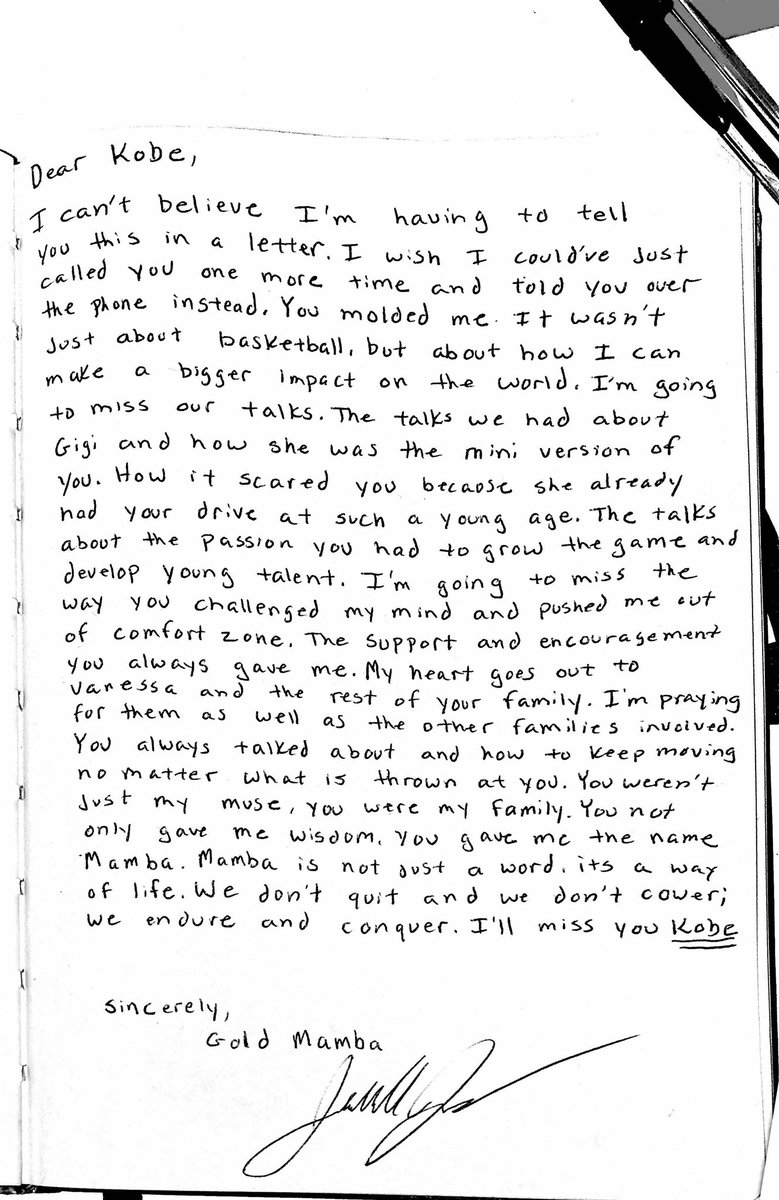 Dear Kobe,
I can't believe I'm having to tell
you this in a letter. I wish I could've just
called you one more time and told you over
the phone instead. You molded me. It wasn't
just about basketball, but about how I can
make a bigger impact on the world. I'm going
to miss our talks. The talks we had about
Gigi and how she was the mini version of
you. How it scared you because she already
had your drive at such a young age. The talks
about the passion you had to grow the game and
develop young talent. I'm going to miss the
way you challenged my mind and pushed me out
of comfort zone. The support and encouragement
you always gave me. My heart goes out to
Vanessa and the rest of your family. I'm praying
for them as well as the other families involved.
You always talked about and how to keep moving
no matter what is thrown at you. You weren't
just my muse, you were my family. You not
only gave me wisdom, you gave me the name
Mamba. Mamba is not just a word, its a way
of life. We don't quit and we don't cower;
we endure and conquer. I'll miss you Kobe
Sincerely,
Gold Mamba